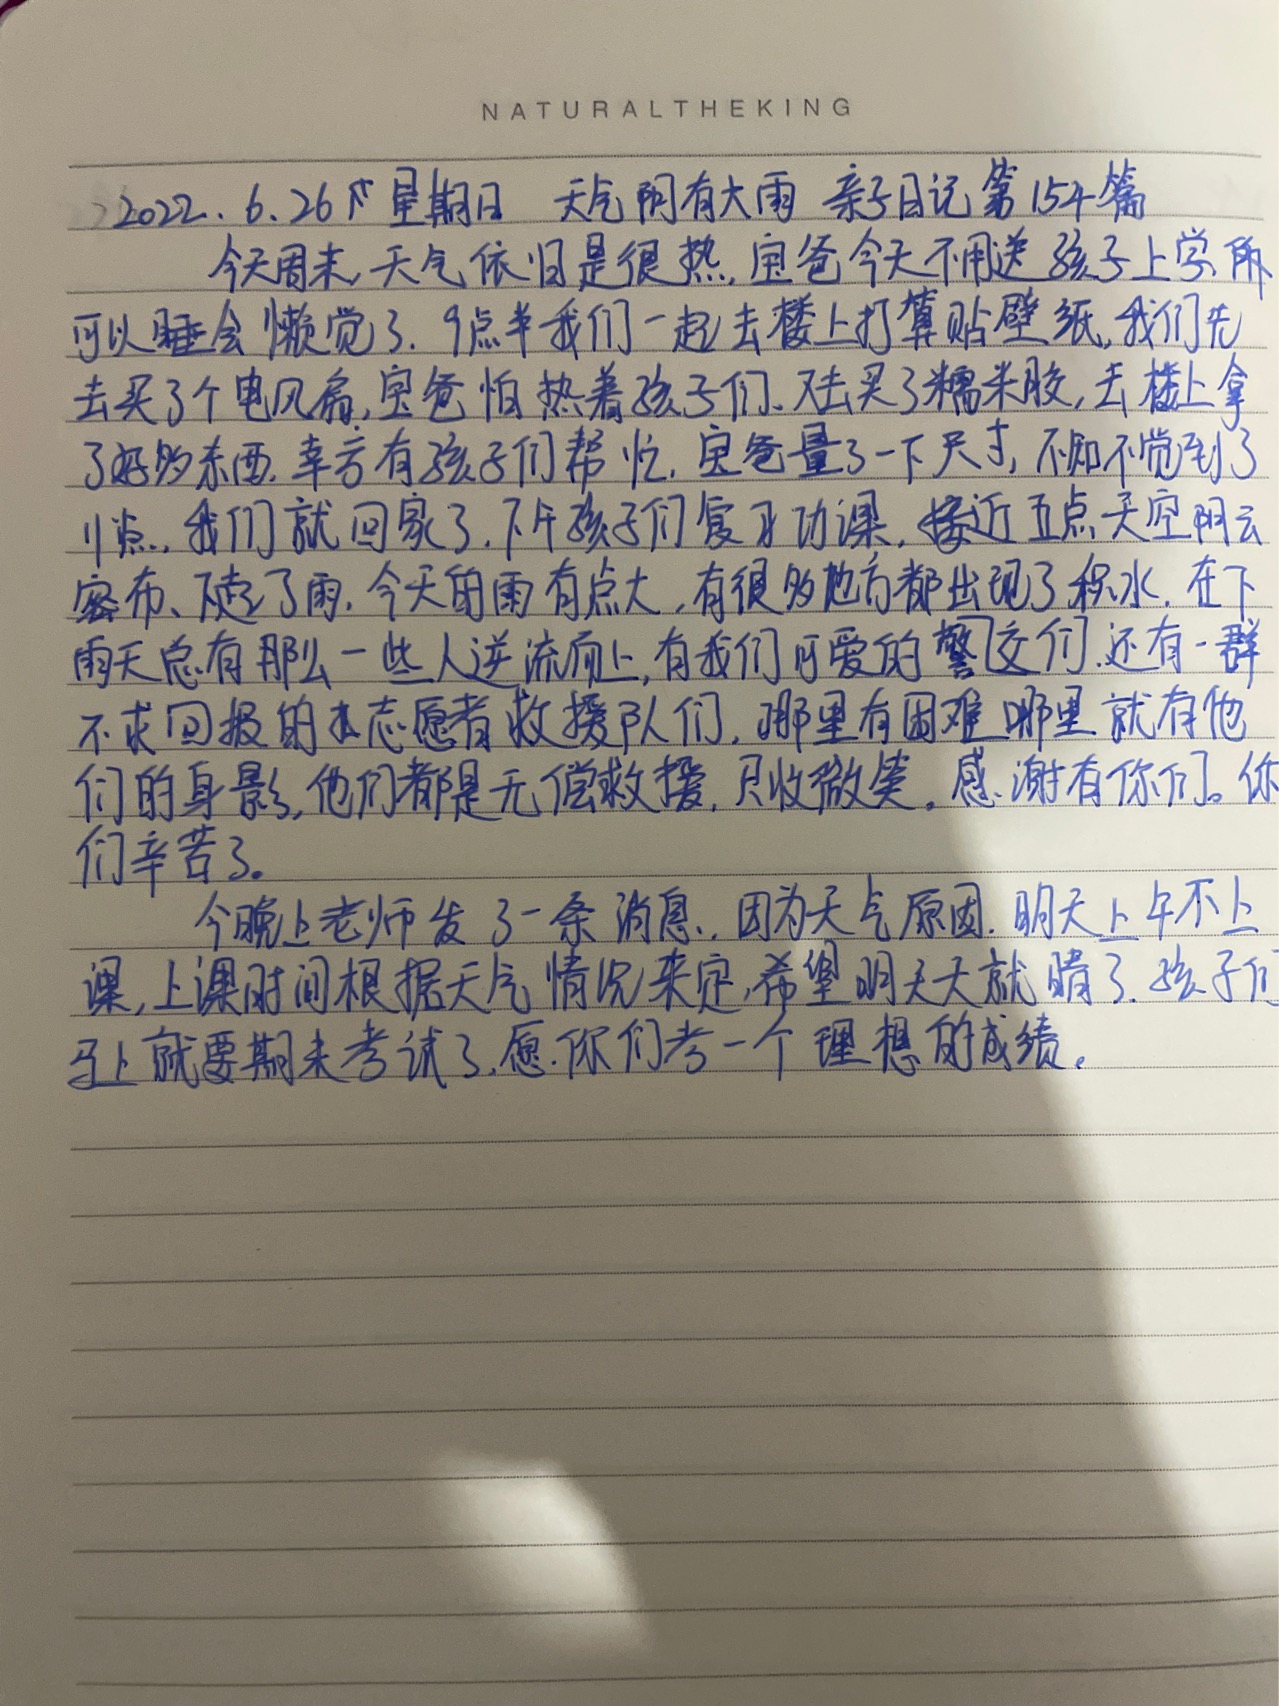 NATURALTHEKING
2022.6.26 星期日 天气阴有大雨 亲子日记第154篇
今天周末,天气依旧是很热,宝爸今天不用送孩子上学,所
可以睡会懒觉了.9点半我们一起去楼上打算贴壁纸,我们先
去买了个电风扇,宝爸怕热着孩子们.又去买了糯米胶,去楼上拿
了好多东西.幸亏有孩子们帮忙.宝爸量了一下尺寸,不知不觉到了
11点,我们就回家了.下午孩子们复习功课,接近五点天空阴云
密布、下起了雨.今天的雨有点大,有很多地方都出现了积水.在下
雨天总有那么一些人逆流而上,有我们可爱的警交们.还有一群
不求回报的志愿者救援队们,哪里有困难哪里就有他
们的身影,他们都是无偿救援,只收微笑。感谢有你们。你
们辛苦了。
今晚上老师发了一条消息.因为天气原因.明天上午不上
课,上课时间根据天气情况来定,希望明天天就晴了.孩子们
马上就要期末考试了,愿你们考一个理想的成绩。